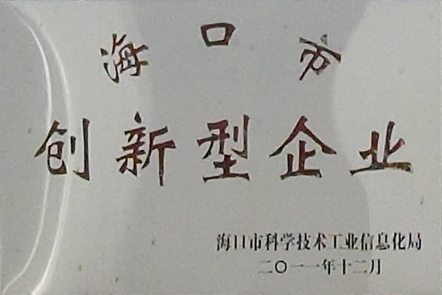 海口市
创新型企业
海口市科学技术工业信息化局
二〇一一年十二月